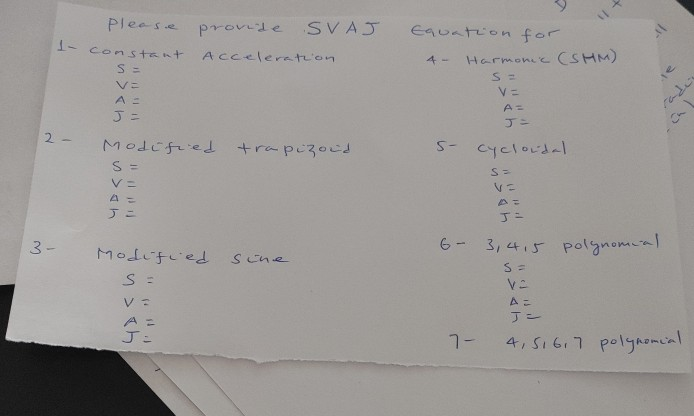 Please provide SVAJ Equation for
1- Constant Acceleration
S =
V =
A =
J =
2 - Modified trapizoid
S =
V =
A =
J =
3 - Modified sine
S =
V =
A =
J =
4 - Harmonic (SHM)
S =
V =
A =
J =
5 - cycloidal
S =
V =
A =
J =
6 - 3,4,5 polynomial
S =
V =
A =
J =
7 - 4,5,6,7 polynomial